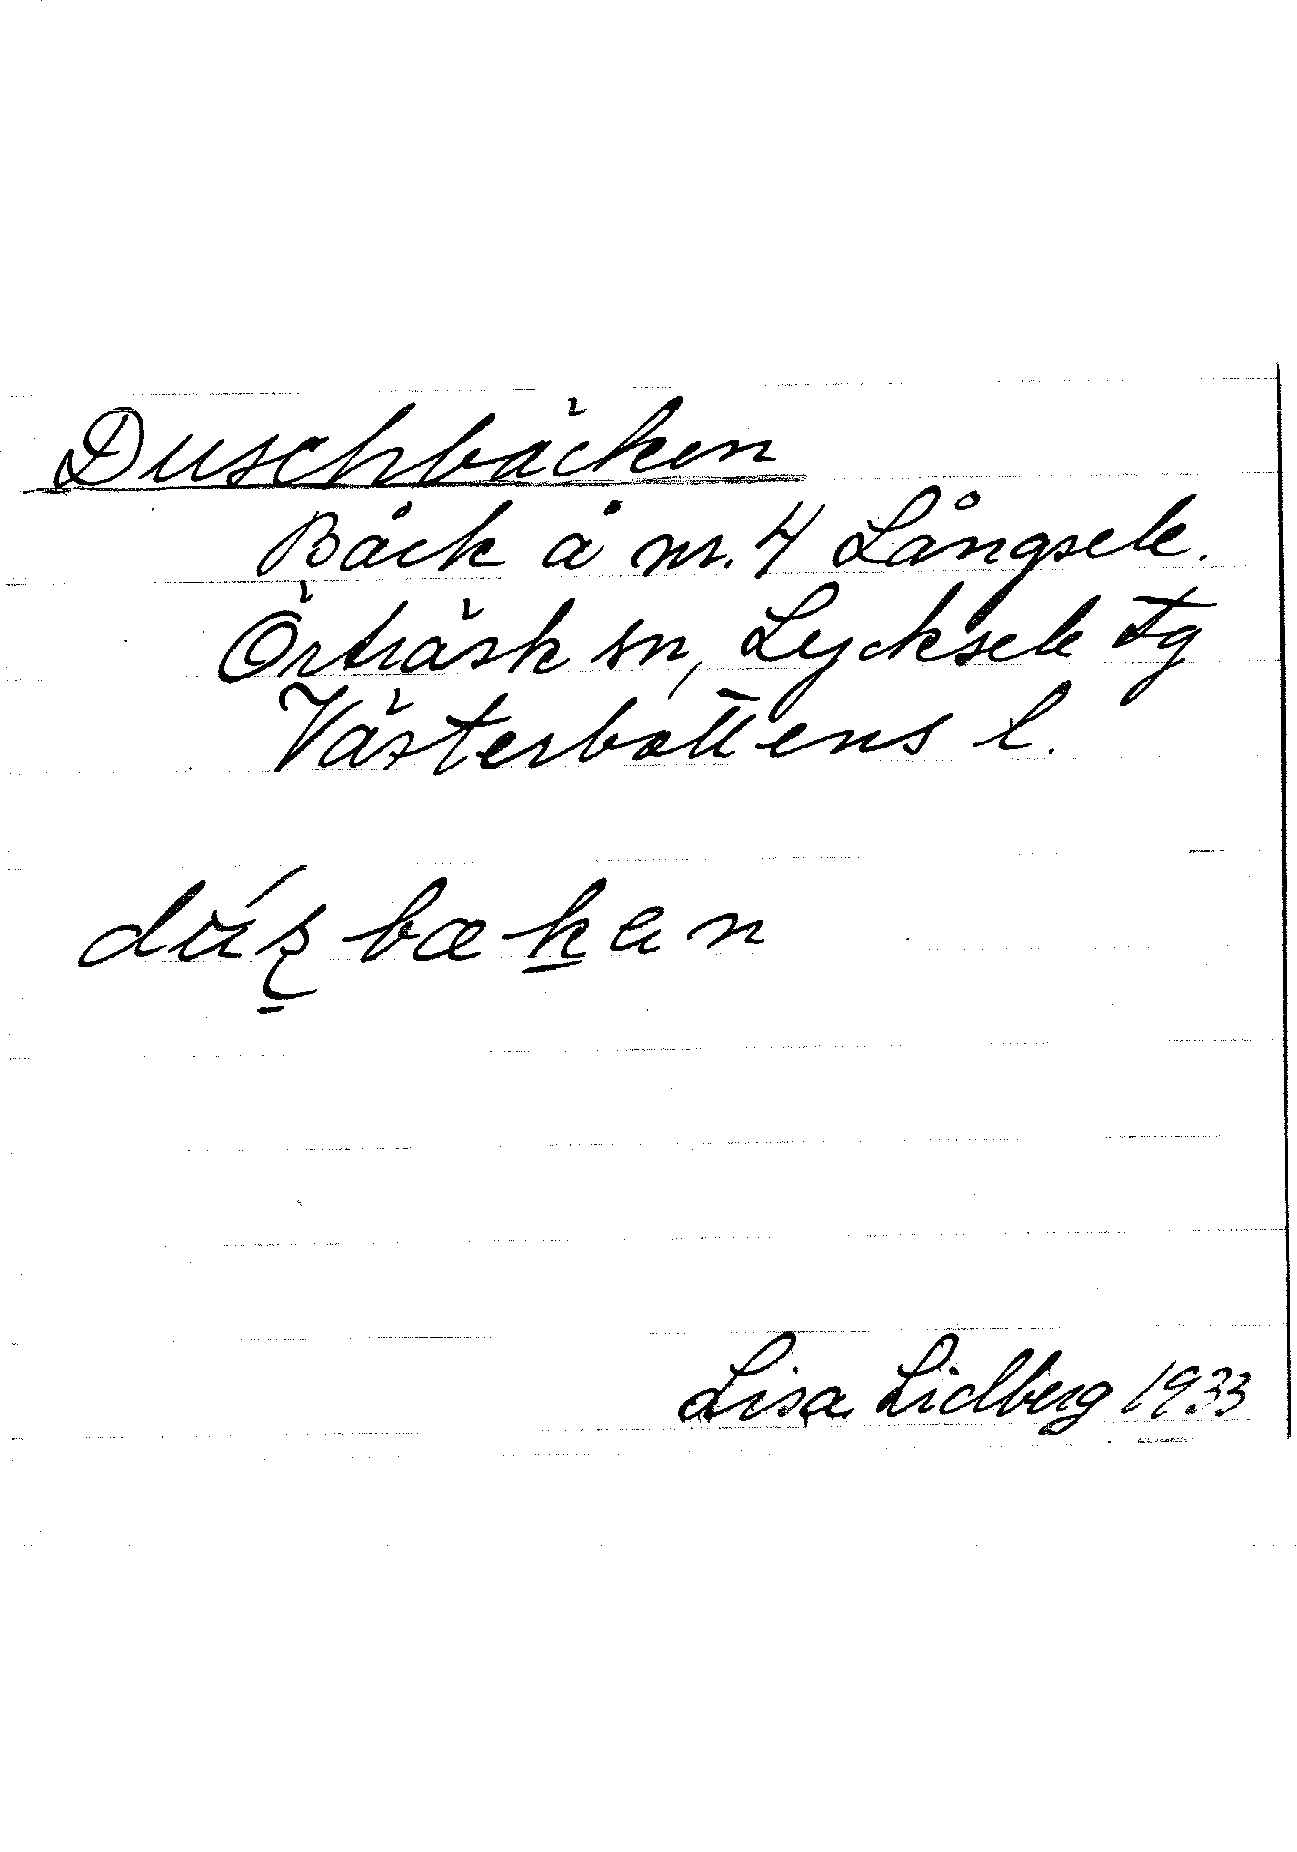 Duschbäcken
Bäck å nr. 4 Långsele.
Örträsk sn, Lycksele tg
Västerbottens l.
Lisa Lidberg 1933